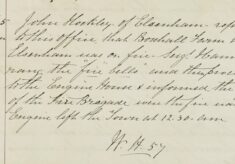 5
John Hockley of Elsenham rep
to this office that Boxhall Farm
Elsenham was on fire Sergt Ham
rang the fire bells and
to the Engine House & informed the
of the Fire Brigade were the fire was
Engine left the Town at 12.30 am
W H 57